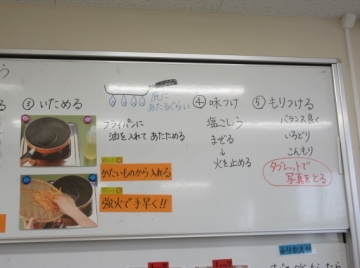 う
る
③いためる
底に
あたるぐらい
フライパンに
油を入れて あたためる
かたいものから入れる
強火で手早く!!
④味つけ
塩こしょう
まぜる
↓
火を止める
⑤もりつける
バランス良く
いろどり
こんもり
タブレットで
写真をとる
ふりかえり